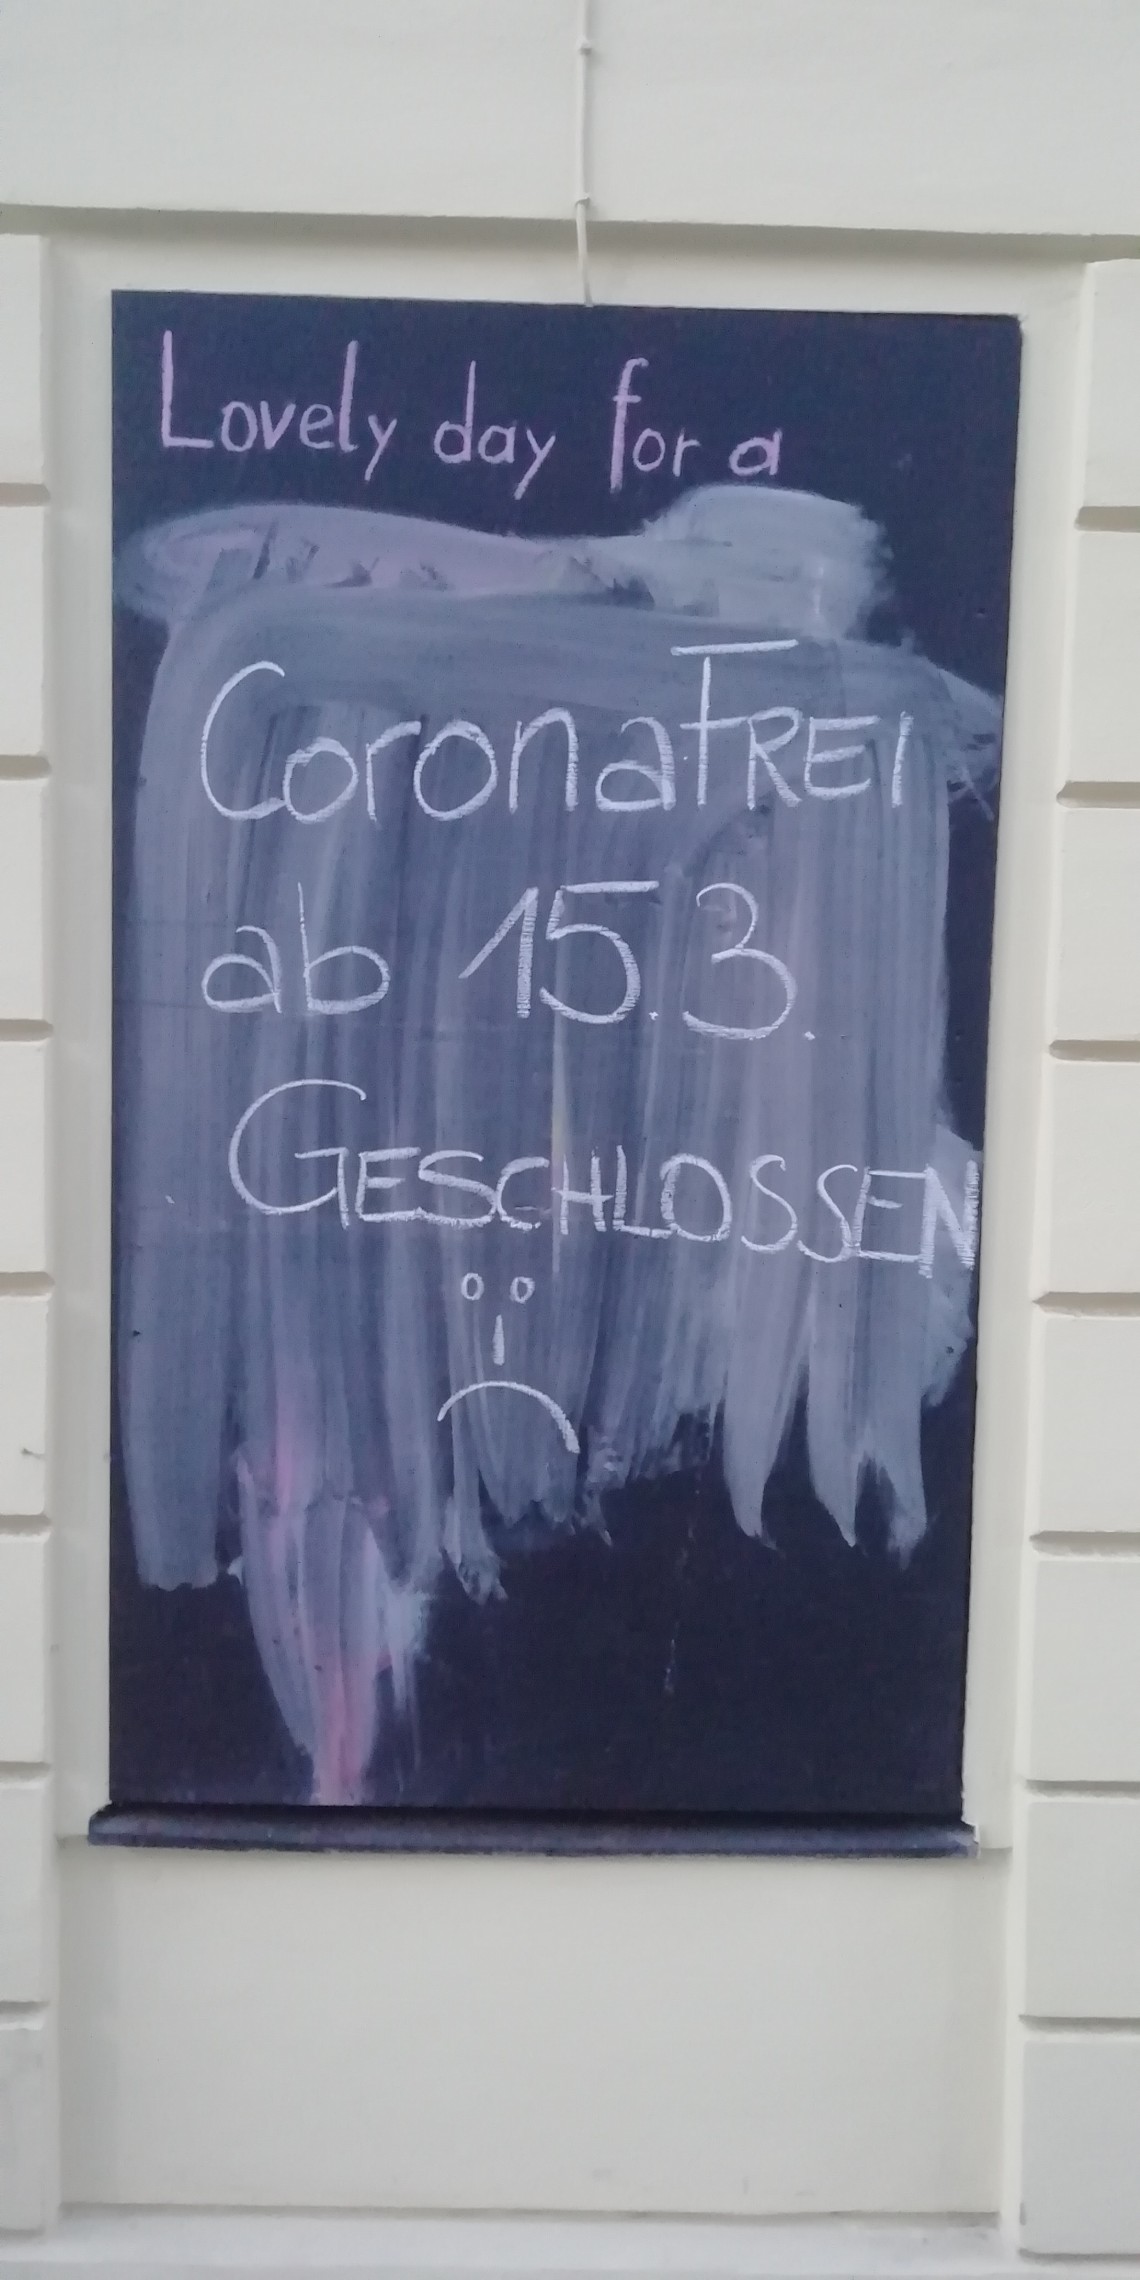 Lovely day for a
CoronaFREI
ab 15.3.
GESCHLOSSEN